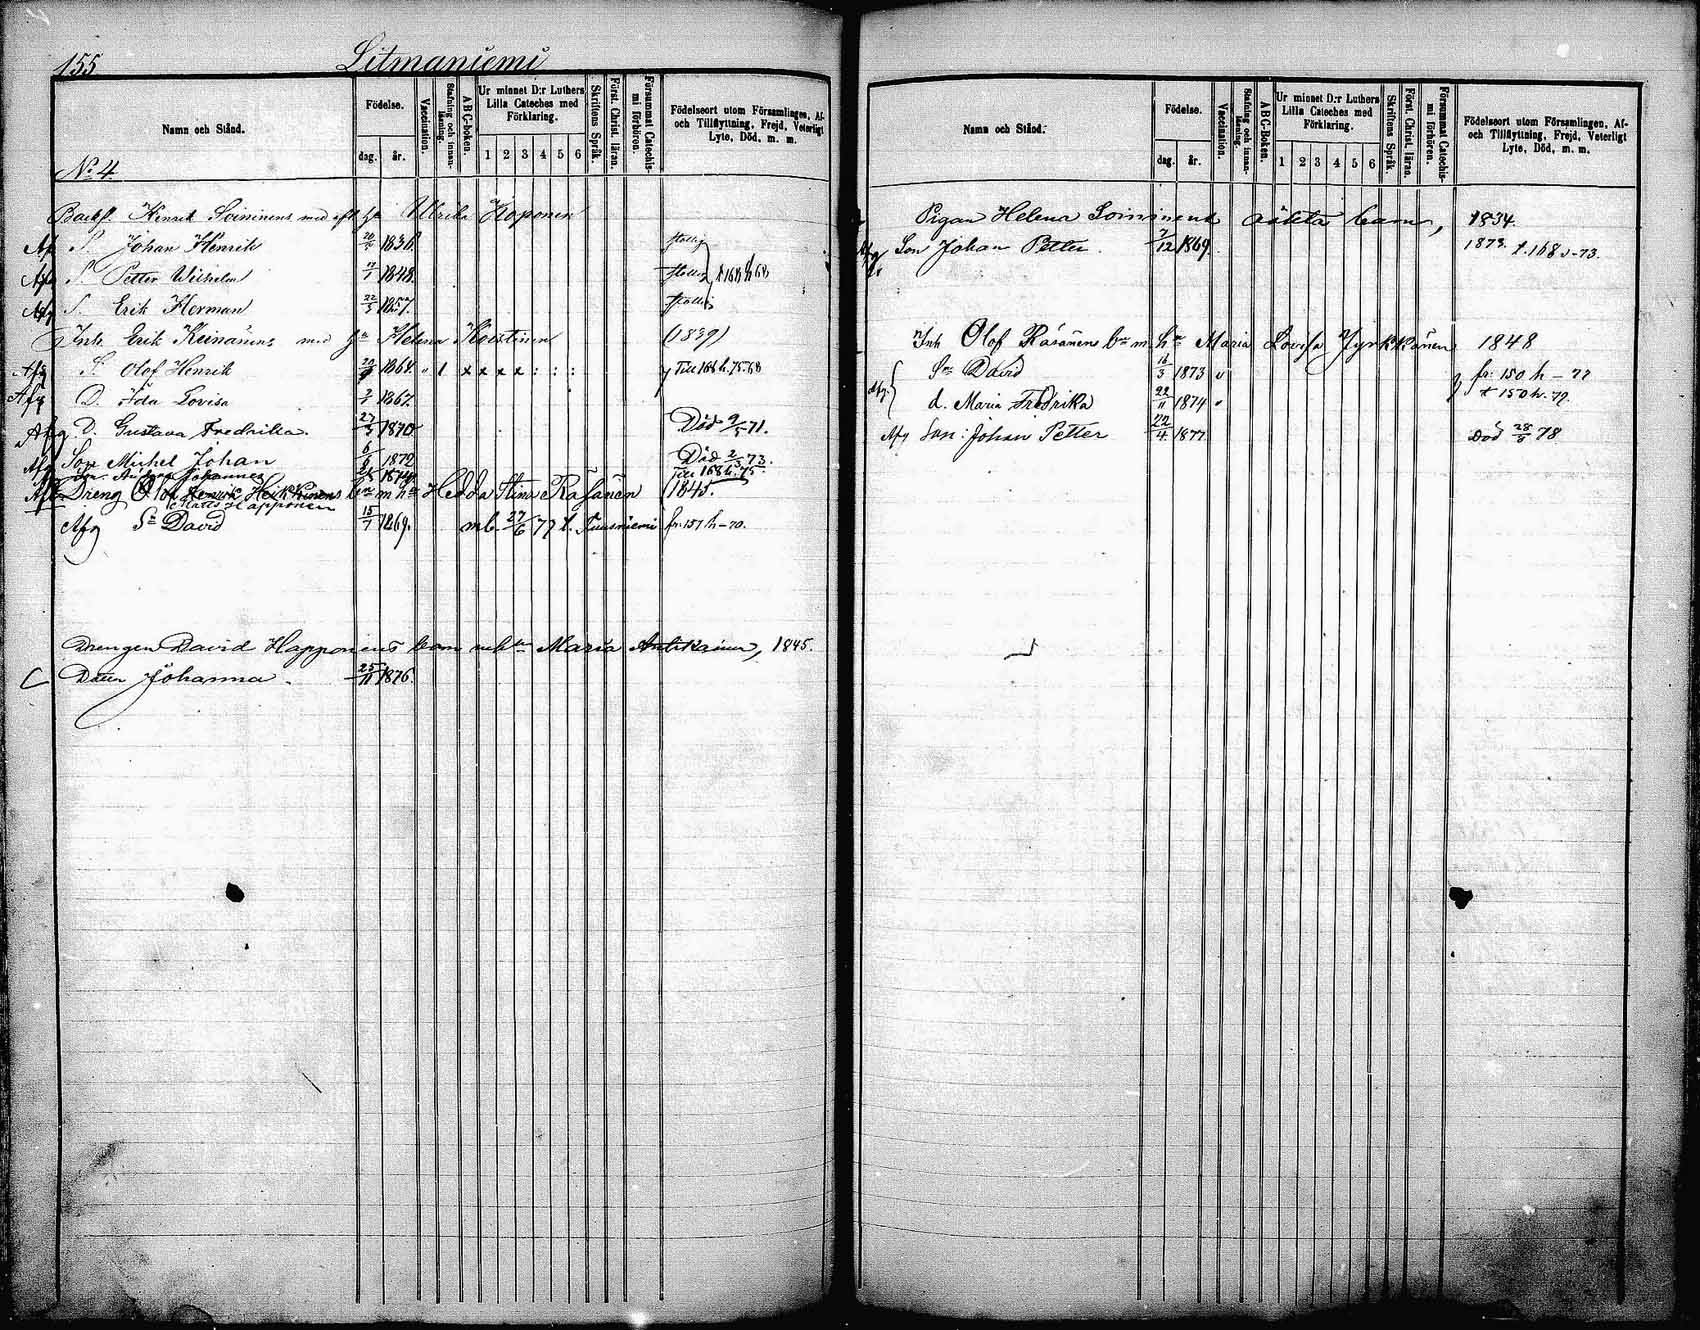 155 Litmaniemi
Namn och Stånd.
Födelse.
dag. år.
Vaccination.
Stafning och innan-läsning.
ABC-boken.
Ur minnet D:r Luthers Lilla Cateches med Förklaring.
1 2 3 4 5 6
Skriftens Språk.
Först. Christ. läran.
Försummat Catechis-mi förhören.
Födelseort utom Församlingen, Af- och Tillflyttning, Frejd, Veterligt Lyte, Död, m. m.
No 4
Henrik Soininens med Ulrika Koponen
S. Johan Henrik 1836
S. Petter Wilhelm 1848
S. Erik Herman 22/3 1857.
Inh. Erik Keinänens med Helena Koistinen (1839)
Afg S. Olof Henrik 1864. x x x x : : : Till 168 h. 75.
Afg D. Ida Lovisa 1867.
Afg D. Gustava Fredrika. 27/3 1870 Död 9/5 71.
Afg Son Michel Johan 1872 Död 2/3 73.
Johannes Till 168 h. 75.
Dreng Olof Henrik Heikkinens bn m hu Hedda Stina Räsänen 1845.
Matts Happonen
Afg Sn David 15/7 1869. mb. 27/6 77 t. Tuusniemi fr. 157 h-70.
Drengen David Happonens barn m hu Maria Antikainen, 1845.
Dotter Johanna. 25/11 1876.
Namn och Stånd.
Födelse.
dag. år.
Vaccination.
Stafning och innan-läsning.
ABC-Boken.
Ur minnet D:r Luthers Lilla Cateches med Förklaring.
1 2 3 4 5 6
Skriftens Språk.
Först Christ. läran.
Försummat Catechis-mi förhören.
Födelseort utom Församlingen, Af- och Tillflyttning, Frejd, Veterligt Lyte, Död, m. m.
Pigan Helena Soininens oäkta barn, 1834.
Afg Son Johan Petter 7/12 1869. 1873. t. 168 v-73.
Inh Olof Räsänens bn m. hu Maria Lovisa Jyrkkänen 1848
Afg. Sn David 16/3 1873 fr. 150 h - 77
d. Maria Fredrika 22/11 1874 t 150 h. 79.
Afg Son: Johan Petter 22/4 1877 Död 28/5 78